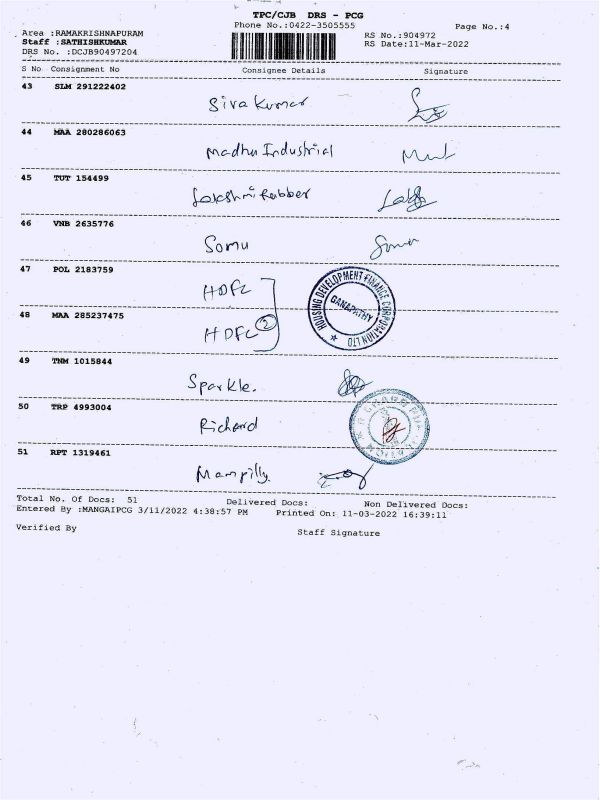 TPC/CJB DRS - PCG
Phone No.:0422-3505555
Page No.:4
Area :RAMAKRISHNAPURAM
Staff :SATHISHKUMAR
DRS No. :DCJB90497204
RS No.:904972
RS Date:11-Mar-2022
S No Consignment No Consignee Details Signature
43 SLM 291222402
Siva kumar
44 MAA 280286063
Madhu Industrial
45 TUT 154499
Lakshmi Rubber
46 VNB 2635776
Somu
47 POL 2183759
HDFC
HOUSING DEVELOPMENT FINANCE CORPORATION LTD
GANAPATHY
48 MAA 285237475
HDFC 2
49 TNM 1015844
Sparkle.
50 TRP 4993004
Richard
51 RPT 1319461
Mampilly.
Total No. Of Docs: 51 Delivered Docs: Non Delivered Docs:
Entered By :MANGAIPCG 3/11/2022 4:38:57 PM Printed On: 11-03-2022 16:39:11
Verified By Staff Signature